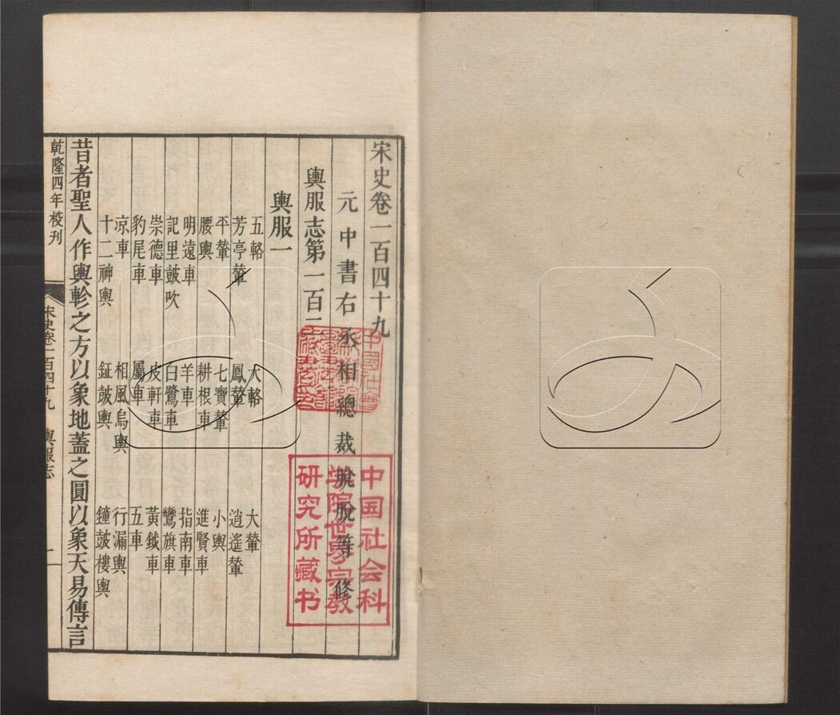 宋史卷一百四十九
元中書右丞相總裁脫脫等修
輿服志第一百二
輿服一
五輅 大輅 大輦
芳亭輦 鳳輦 逍遙輦
平輦 七寶輦 小輿
腰輿 耕根車 進賢車
明遠車 羊車 指南車
記里鼓吹 白鷺車 鸞旗車
崇德車 皮軒車 黃鉞車
豹尾車 屬車 五車
凉車 相風烏輿 行漏輿
十二神輿 鉦鼓輿 鐘鼓樓輿
昔者聖人作輿軫之方以象地蓋之圓以象天易傳言
乾隆四年校刊
宋史卷一百四十九 輿服志 一
中国社会科
学院世界宗教
研究所藏书